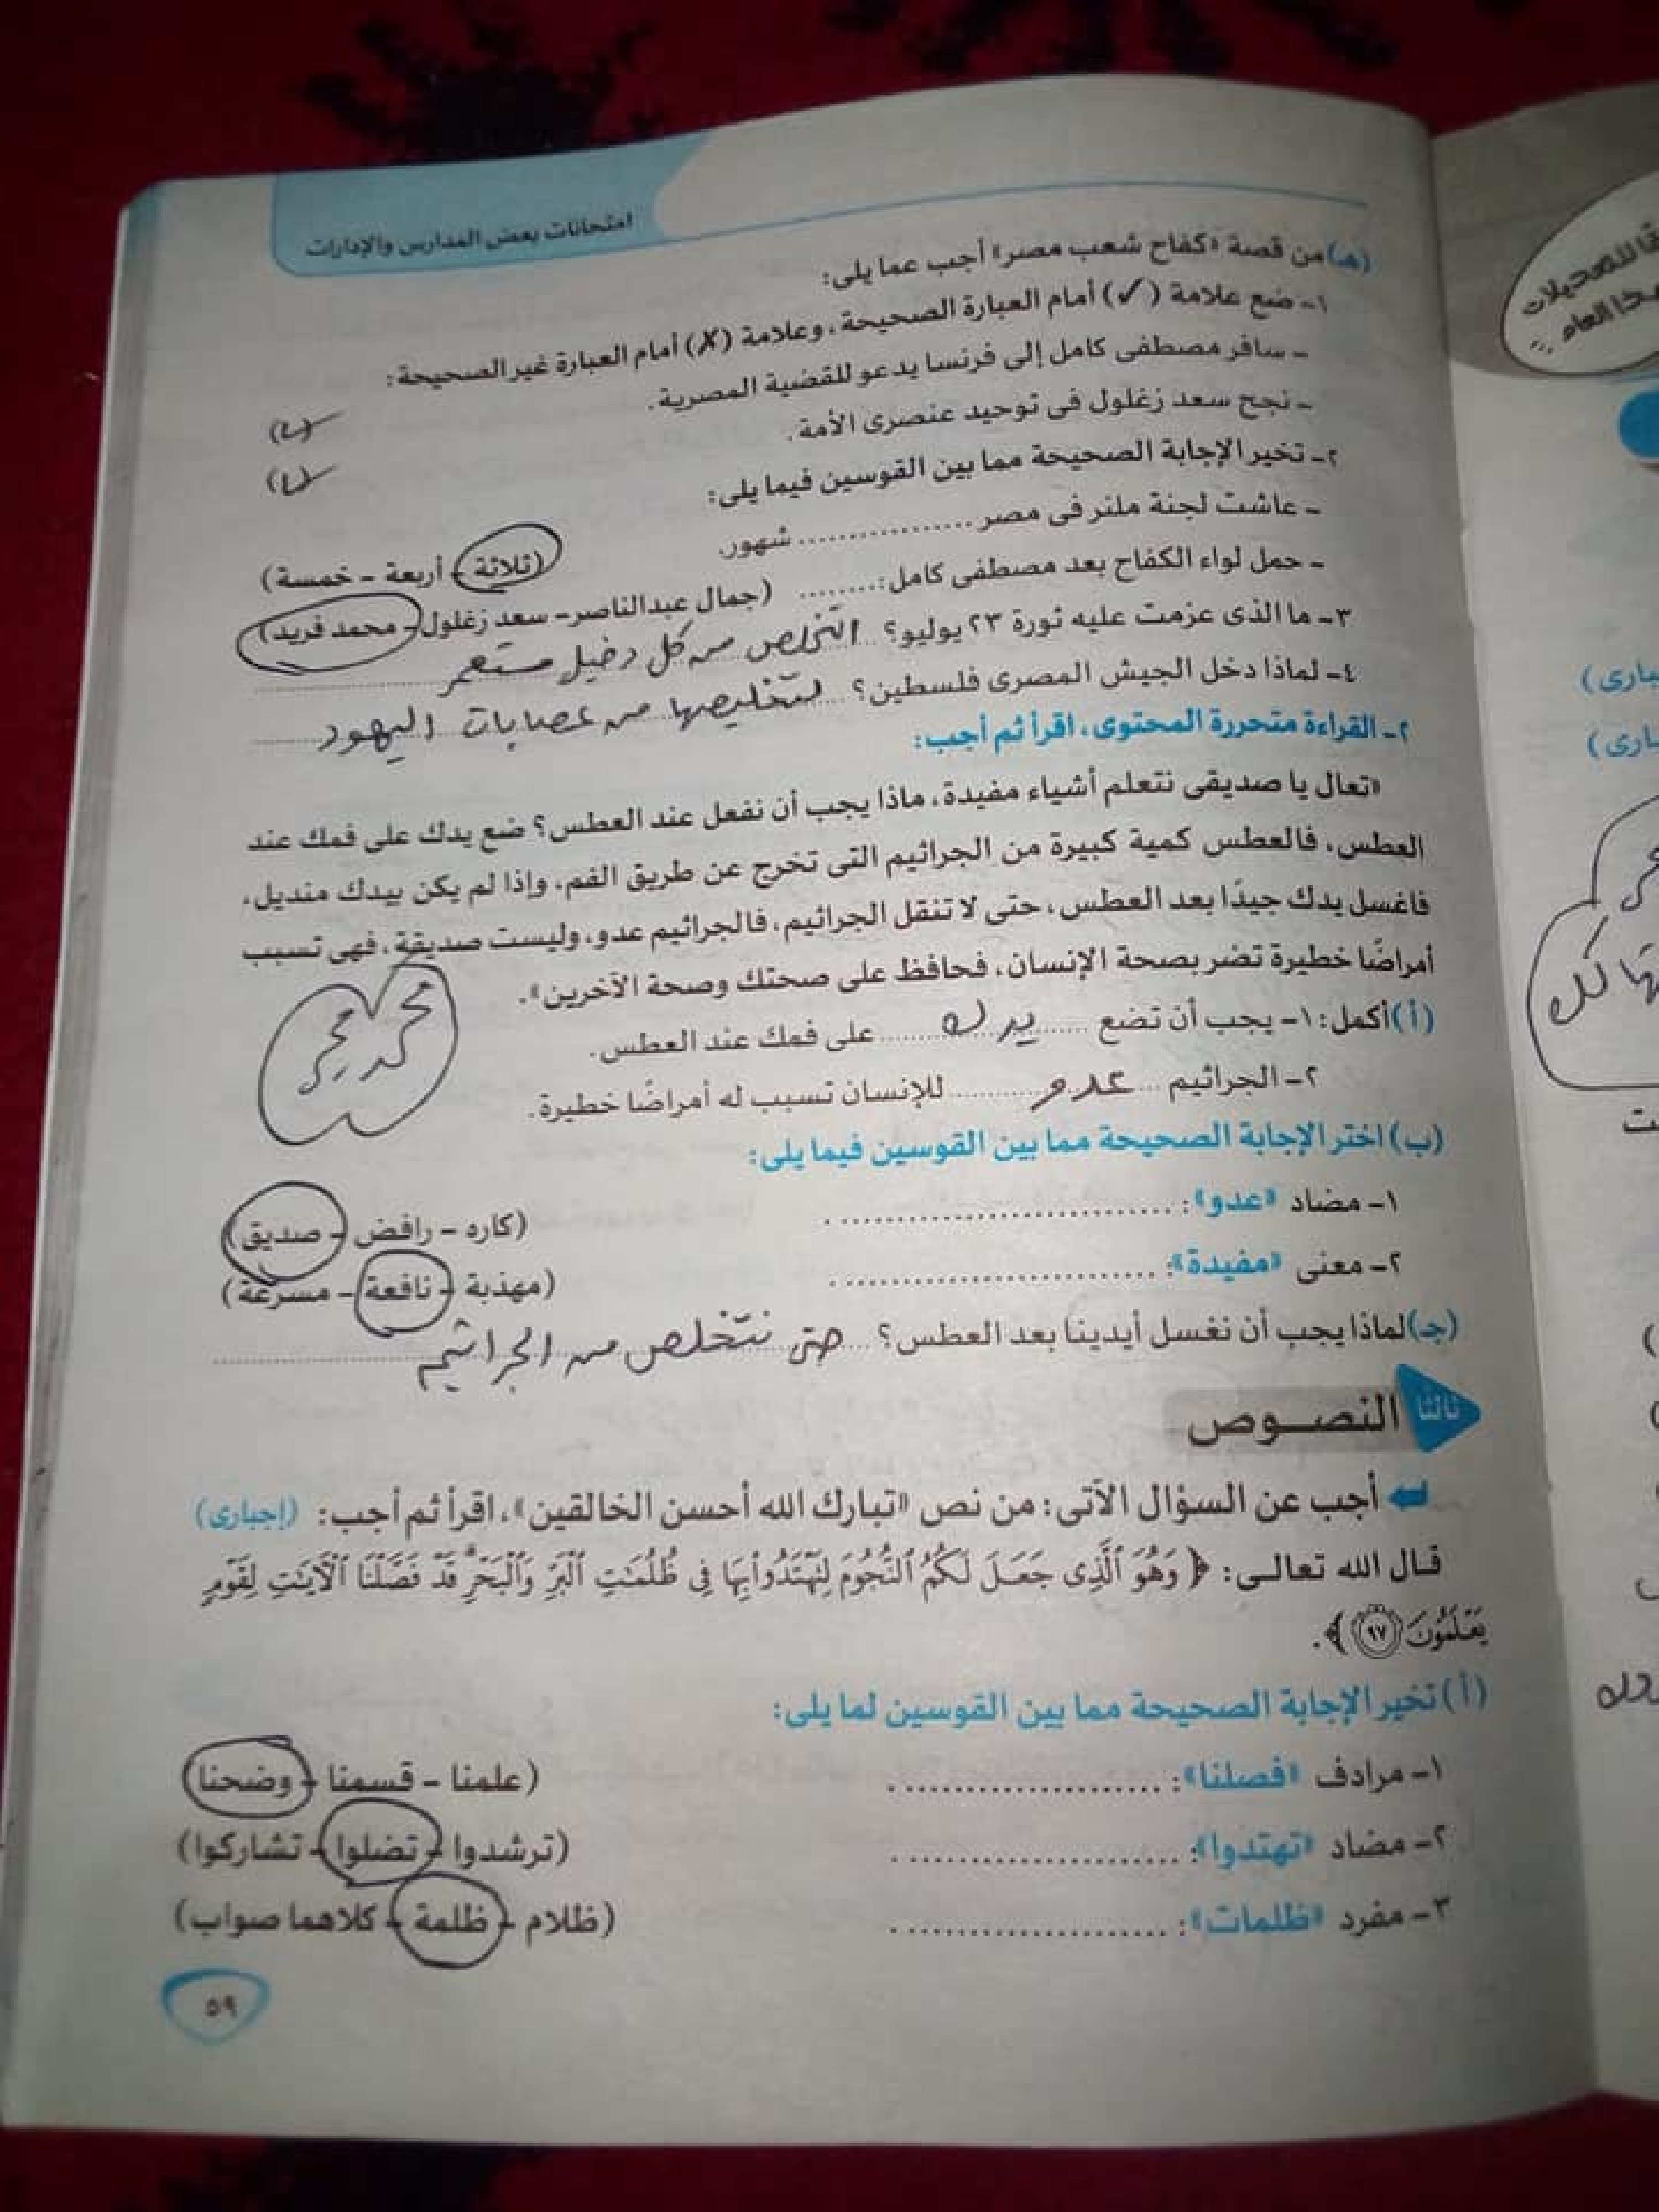 امتحانات بعض المدارس والإدارات
(هـ) من قصة «كفاح شعب مصر» أجب عما يلى:
١- ضع علامة (✓) أمام العبارة الصحيحة، وعلامة (✗) أمام العبارة غير الصحيحة:
- سافر مصطفى كامل إلى فرنسا يدعو للقضية المصرية. (✓)
- نجح سعد زغلول فى توحيد عنصرى الأمة. (✓)
٢- تخير الإجابة الصحيحة مما بين القوسين فيما يلى:
- عاشت لجنة ملنر فى مصر ................ شهور. (ثلاثة - أربعة - خمسة)
- حمل لواء الكفاح بعد مصطفى كامل: ........ (جمال عبدالناصر - سعد زغلول - محمد فريد)
٣- ما الذى عزمت عليه ثورة ٢٣ يوليو؟ التخلص من كل دخيل مستعمر
٤- لماذا دخل الجيش المصرى فلسطين؟ لتخليصها من عصابات اليهود
٢- القراءة متحررة المحتوى، اقرأ ثم أجب:
«تعال يا صديقى نتعلم أشياء مفيدة، ماذا يجب أن نفعل عند العطس؟ ضع يدك على فمك عند
العطس، فالعطس كمية كبيرة من الجراثيم التى تخرج عن طريق الفم، وإذا لم يكن بيدك منديل،
فاغسل يدك جيدًا بعد العطس، حتى لا تنقل الجراثيم، فالجراثيم عدو، وليست صديقة، فهى تسبب
أمراضًا خطيرة تضر بصحة الإنسان، فحافظ على صحتك وصحة الآخرين».
(أ) أكمل: ١- يجب أن تضع يدك على فمك عند العطس.
٢- الجراثيم عدو للإنسان تسبب له أمراضًا خطيرة.
(ب) اختر الإجابة الصحيحة مما بين القوسين فيما يلى:
١- مضاد «عدو»: ........................ . (كاره - رافض - صديق)
٢- معنى «مفيدة»: ........................ . (مهذبة - نافعة - مسرعة)
(جـ) لماذا يجب أن نغسل أيدينا بعد العطس؟ حتى نتخلص من الجراثيم
ثالثا النصوص
أجب عن السؤال الآتى: من نص «تبارك الله أحسن الخالقين»، اقرأ ثم أجب: (إجبارى)
قال الله تعالى: ﴿ وَهُوَ ٱلَّذِى جَعَلَ لَكُمُ ٱلنُّجُومَ لِتَهْتَدُوا۟ بِهَا فِى ظُلُمَـٰتِ ٱلْبَرِّ وَٱلْبَحْرِ ۗ قَدْ فَصَّلْنَا ٱلْـَٔايَـٰتِ لِقَوْمٍ
يَعْلَمُونَ (٩٧) ﴾.
(أ) تخير الإجابة الصحيحة مما بين القوسين لما يلى:
١- مرادف «فصلنا»: ..................... . (علمنا - قسمنا - وضحنا)
٢- مضاد «تهتدوا»: ..................... . (ترشدوا - تضلوا - تشاركوا)
٣- مفرد «ظلمات»: ..................... . (ظلام - ظلمة - كلاهما صواب)
٥٩